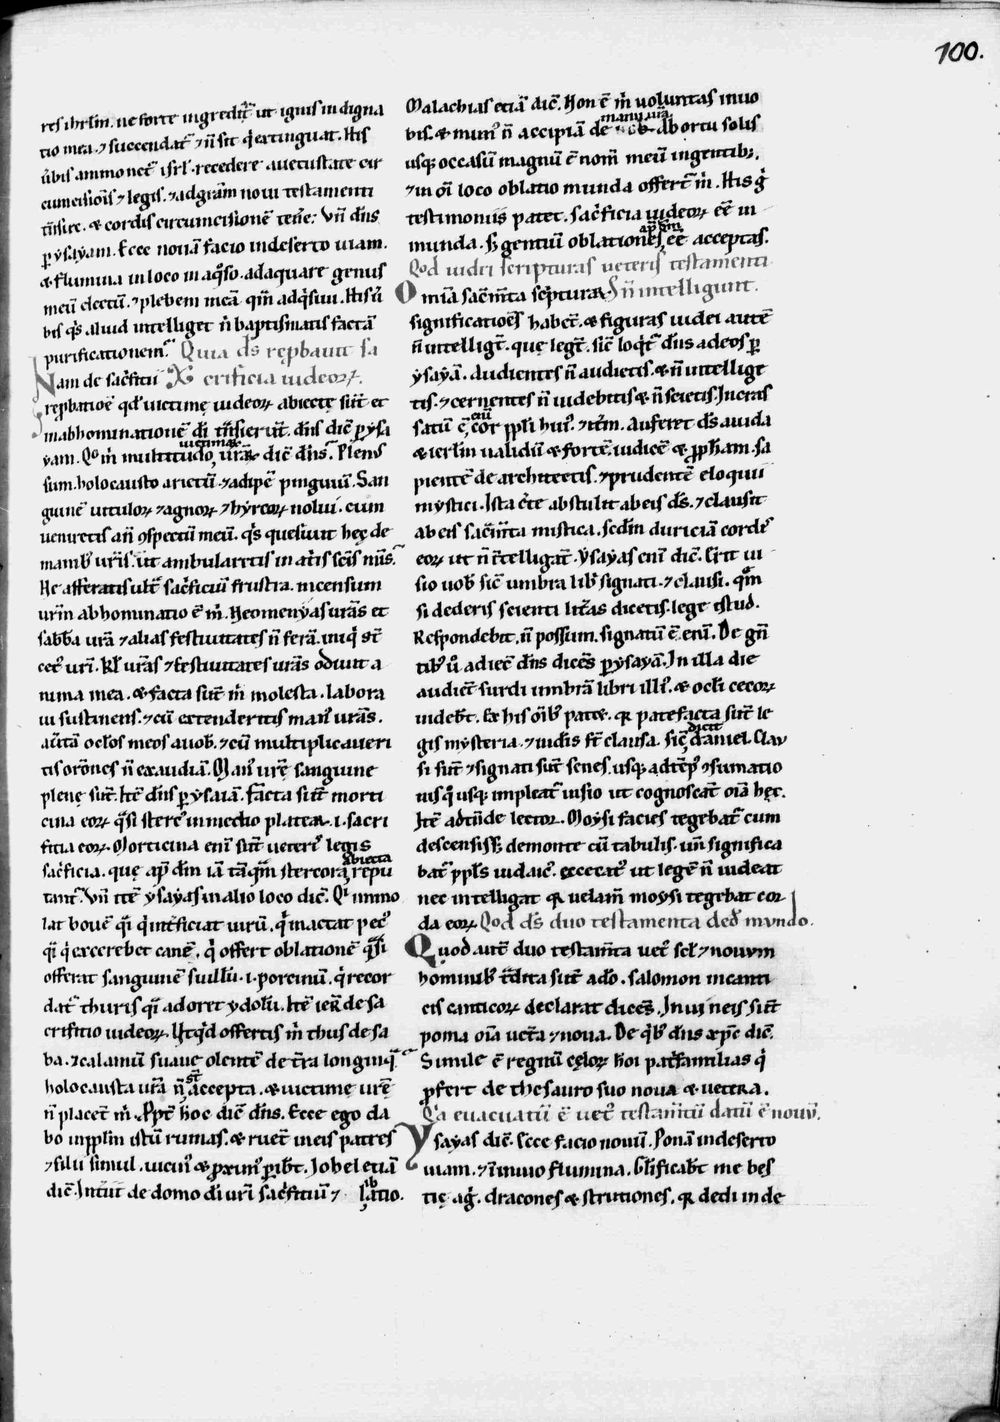 100.
res ihrl̄m. ne forte ingredit̄ ut ignis indigna
tio mea. ⁊ succendat̄ ⁊ n̄ sit q̇ extinguat. His
ůbis ammonet̄ isrl̄. recedere a uetustate cir
cumcisiōis ⁊ legis. ⁊ ad grām noui testamenti
tn̄sire. & cordis circumcisionē tene: Vn̄ dn̄s
ꝑ ysayam. Ecce nouā facio in deserto uiam.
& flumina in loco inaq̊so. adaquare genus
meū electū. ⁊ plebem meā qm̄ adq̇siui. His ů
bis q̇s aliud intelliget n̄ baptismatis factā
purificationem. Quia dс̄ rep̱bauit sa
Nam de sac̄fitii crificia iudeoꝝ.
rep̱batiōe qđ uictimę iudeoꝝ abiectę sūt et
in abhominationē di tn̄sierūt. dn̄s dic̄ ꝑ ysa
yam. Qo m̄ multitudo uictimaꝝ urāꝝ dic̄ dn̄s. Plenus
sum. holocausto arietū. ⁊ adipē pinguiū. San
guinē uituloꝝ ⁊ agnoꝝ ⁊ hyrcoꝝ nolui. cum
ueniretis an̄ ꝯspectū meū. q̇s quesiuit hęc de
manib᷒ urīs. ut ambularetis in atr̄is sc̄is mīs.
Ne afferatis ult̄ sac̄ficiū frustra. incensum
urm̄ abhominatio ē m̄. Neomenyas urās et
sabba urā ⁊ alias festiuitates n̄ ferā. iniq̇ st̄
cet᷒ urī. kl̄ urās ⁊ festiuitates urās odiuit a
nima mea. & facta sūt m̄ molesta. labora
ui sustinens. ⁊ cū extenderitis man᷒ urās.
au̇tā oclos meos a uob. ⁊ cū multiplicaueri
tis orōnes n̄ exaudiā. Man᷒ urę̄ sanguine
plenę sūt. Itē dn̄s ꝑ ysaiā. Facta sūt morti
cina eoꝝ. q̇si sterc᷒ in medio plateaꝝ. i. sacri
fitia eoꝝ. Morticina eni sūt ueteris legis
sac̄ficia. quę ap̄ dm̄ iā tāq̄m stercora abiecta repu
tant̄. Vn̄ itē ysayas in alio loco dic̄. Qi immo
lat bouē q̇i q̇ int̄ficiat uirū. q̇ mactat pec᷒
q̇i q̇ excerebret canē. q̇ offert oblationē q̇si
offerat sanguinē suillū. i. porcinū. q̇ recor
dat̄ thuris q̇i adoret ydolū. Itē ier̄. de sa
crifitio iudeoꝝ. Ut qđ offertis m̄ thus de sa
ba. ⁊ calamū suaue olentē de tr̄a longinq̄.
holocausta urā n̄ st̄ accepta. & uictimę urę̄
n̄ placet m̄. Ppt̄ hoc dic̄ dn̄s. Ecce ego da
bo in pplm̄ istū ruinas. & ruet̄ in eis patres
⁊ filii simul. uicin᷒ & ꝓxim᷒ ꝑibt̄. Johel etiā
dic̄. Int̄iit de domo di urī sac̄fitiū ⁊ libatio.
Malachias etiā dic̄. Non ē m̄ uoluntas in uo
bis. & mun᷒ n̄ accipiā de manu urā. Ab ortu solis
usq; occasū magnū ē nom̄ meū in gentib;.
⁊ in oī loco oblatio munda offert̄ m̄. His g̊
testimoniis patet. sac̄ficia iudeoꝝ eē in
munda. s; gentiū oblationes ap̄ dm̄ eē acceptas.
Qođ iudei scripturas ueteris testamenti
Omīa sac̄m̄ta sc̄pturaꝝ. n̄ intelligunt.
significatiōes habēt. & figuras iudei autē
n̄ intelligt̄. quę legt̄. sic̄ loq̇t̄ dn̄s ad eos ꝑ
ysayā. Audientes n̄ audietis. & n̄ intellige
tis. ⁊ cernentes n̄ uidebitis & n̄ scietis. Incras
satū ē enī cor ppl̄i hui᷒. ⁊ itm̄. Auferet ds̄ a iuda
& ierl̄m ualidū & fortē. iudicē & ꝓph̄am. sa
pientē de architectis. ⁊ prudentē eloquii
mystici. Ista c̄te abstulit ab eis ds̄. ⁊ clausit
ab eis sac̄m̄ta mistica. scd̄m duriciā cordis
eoꝝ ut n̄ ītelligat̄. Ysayas enī dic̄. Erit ui
sio uob sic̄ umbra lib signati. ⁊ clausi. qm̄
si dederis scienti litt̄as dicetis. lege istud.
Respondebit. n̄ possum. signatū ē enī. De gn̄
tib᷒ ů adiec̄ dn̄s dicēs ꝑ ysayā. In illa die
audiēt surdi umbrā libri illi᷒. & ocl̄i cecoꝝ
uidebt̄. Ex his oīb᷒ patet. qꝛ patefacta sūt le
gis mysteria. ⁊ iudeis st̄ clausa. sic̄ dicit daniel. Clau
si sūt ⁊ signati sūt senes. usq; ad tēp᷒ ꝯsumatio
nis q̇ usq; impleat̄ iusio ut cognoscat̄ oīa hęc.
Itē adtn̄de lector. Moysi facies tegebat̄ cum
descensiss; de monte cū tabulis. un̄ significa
bat̄ ppl̄s iudaic᷒. excecat᷒ ut legē n̄ uideat
nec intelligat qꝛ uelam̄ moysi tegebat cor
da eoꝝ. Qođ ds̄ duo testamenta ded̄ mundo.
Quod aut̄ duo testam̄ta uet᷒ scl̄. ⁊ nouum
hominib᷒ tdita sūt a do. salomon in canti
cis canticoꝝ declarat dicēs. In ui neis sūt
poma oīa uet̄a ⁊ noua. De q̇b᷒ dn̄s xp̄c dic̄.
Simile ē regnū cęloꝝ hoi patfamilias q̇
ꝓfert de thesauro suo noua & uetera.
Qa euacuatū ē uet᷒ testam̄tū datū ē nouū.
Ysayas dic̄. Ecce facio nouū. Ponā in deserto
uiam. ⁊ in inuio flumina. Gl̄ificabt̄ me bes
tię ag̊. dracones & strutiones. qꝛ dedi in de